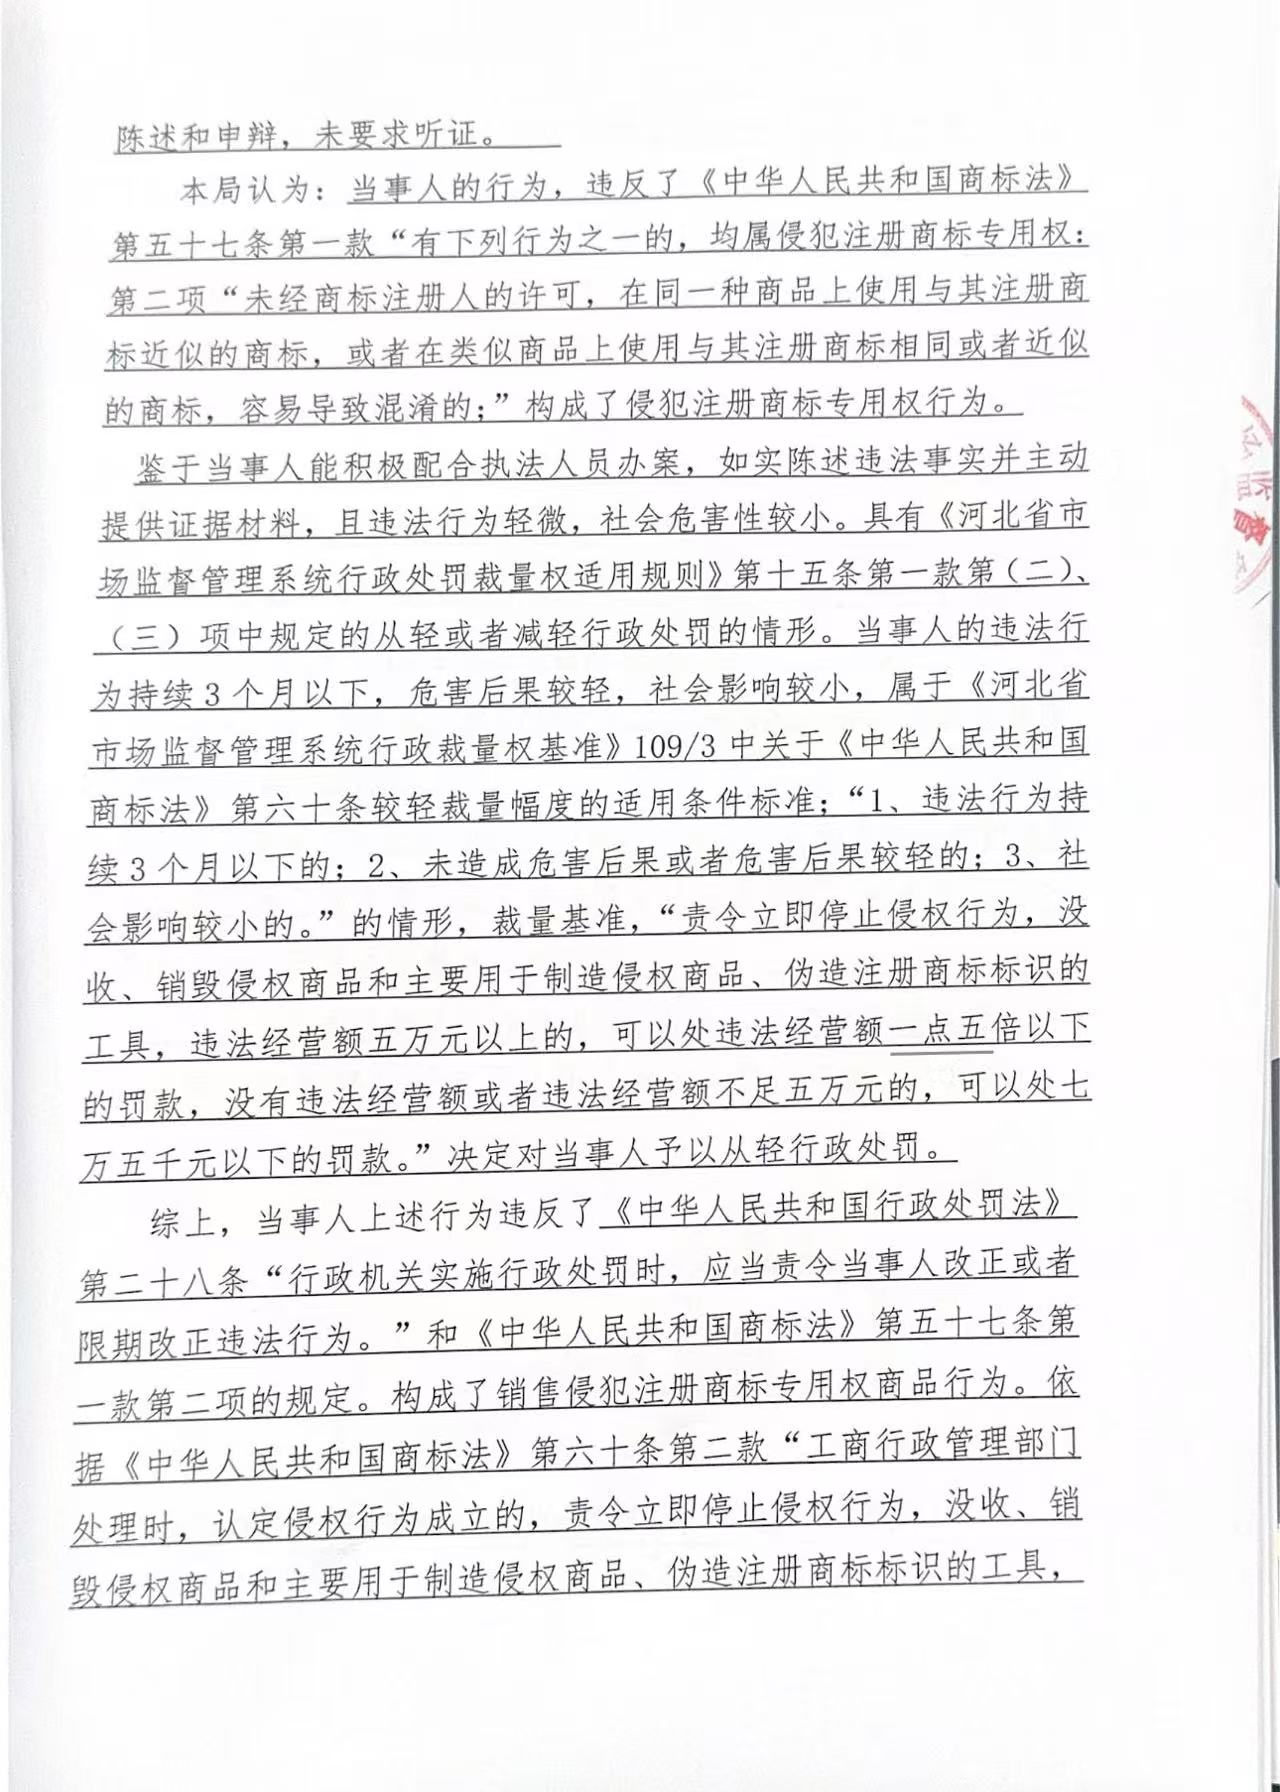 陈述和申辩，未要求听证。
本局认为：当事人的行为，违反了《中华人民共和国商标法》
第五十七条第一款“有下列行为之一的，均属侵犯注册商标专用权：
第二项“未经商标注册人的许可，在同一种商品上使用与其注册商
标近似的商标，或者在类似商品上使用与其注册商标相同或者近似
的商标，容易导致混淆的；”构成了侵犯注册商标专用权行为。
鉴于当事人能积极配合执法人员办案，如实陈述违法事实并主动
提供证据材料，且违法行为轻微，社会危害性较小。具有《河北省市
场监督管理系统行政处罚裁量权适用规则》第十五条第一款第（二）、
（三）项中规定的从轻或者减轻行政处罚的情形。当事人的违法行
为持续3个月以下，危害后果较轻，社会影响较小，属于《河北省
市场监督管理系统行政裁量权基准》109/3中关于《中华人民共和国
商标法》第六十条较轻裁量幅度的适用条件标准；“1、违法行为持
续3个月以下的；2、未造成危害后果或者危害后果较轻的；3、社
会影响较小的。”的情形，裁量基准，“责令立即停止侵权行为，没
收、销毁侵权商品和主要用于制造侵权商品、伪造注册商标标识的
工具，违法经营额五万元以上的，可以处违法经营额一点五倍以下
的罚款，没有违法经营额或者违法经营额不足五万元的，可以处七
万五千元以下的罚款。”决定对当事人予以从轻行政处罚。
综上，当事人上述行为违反了《中华人民共和国行政处罚法》
第二十八条“行政机关实施行政处罚时，应当责令当事人改正或者
限期改正违法行为。”和《中华人民共和国商标法》第五十七条第
一款第二项的规定。构成了销售侵犯注册商标专用权商品行为。依
据《中华人民共和国商标法》第六十条第二款“工商行政管理部门
处理时，认定侵权行为成立的，责令立即停止侵权行为，没收、销
毁侵权商品和主要用于制造侵权商品、伪造注册商标标识的工具，
监督